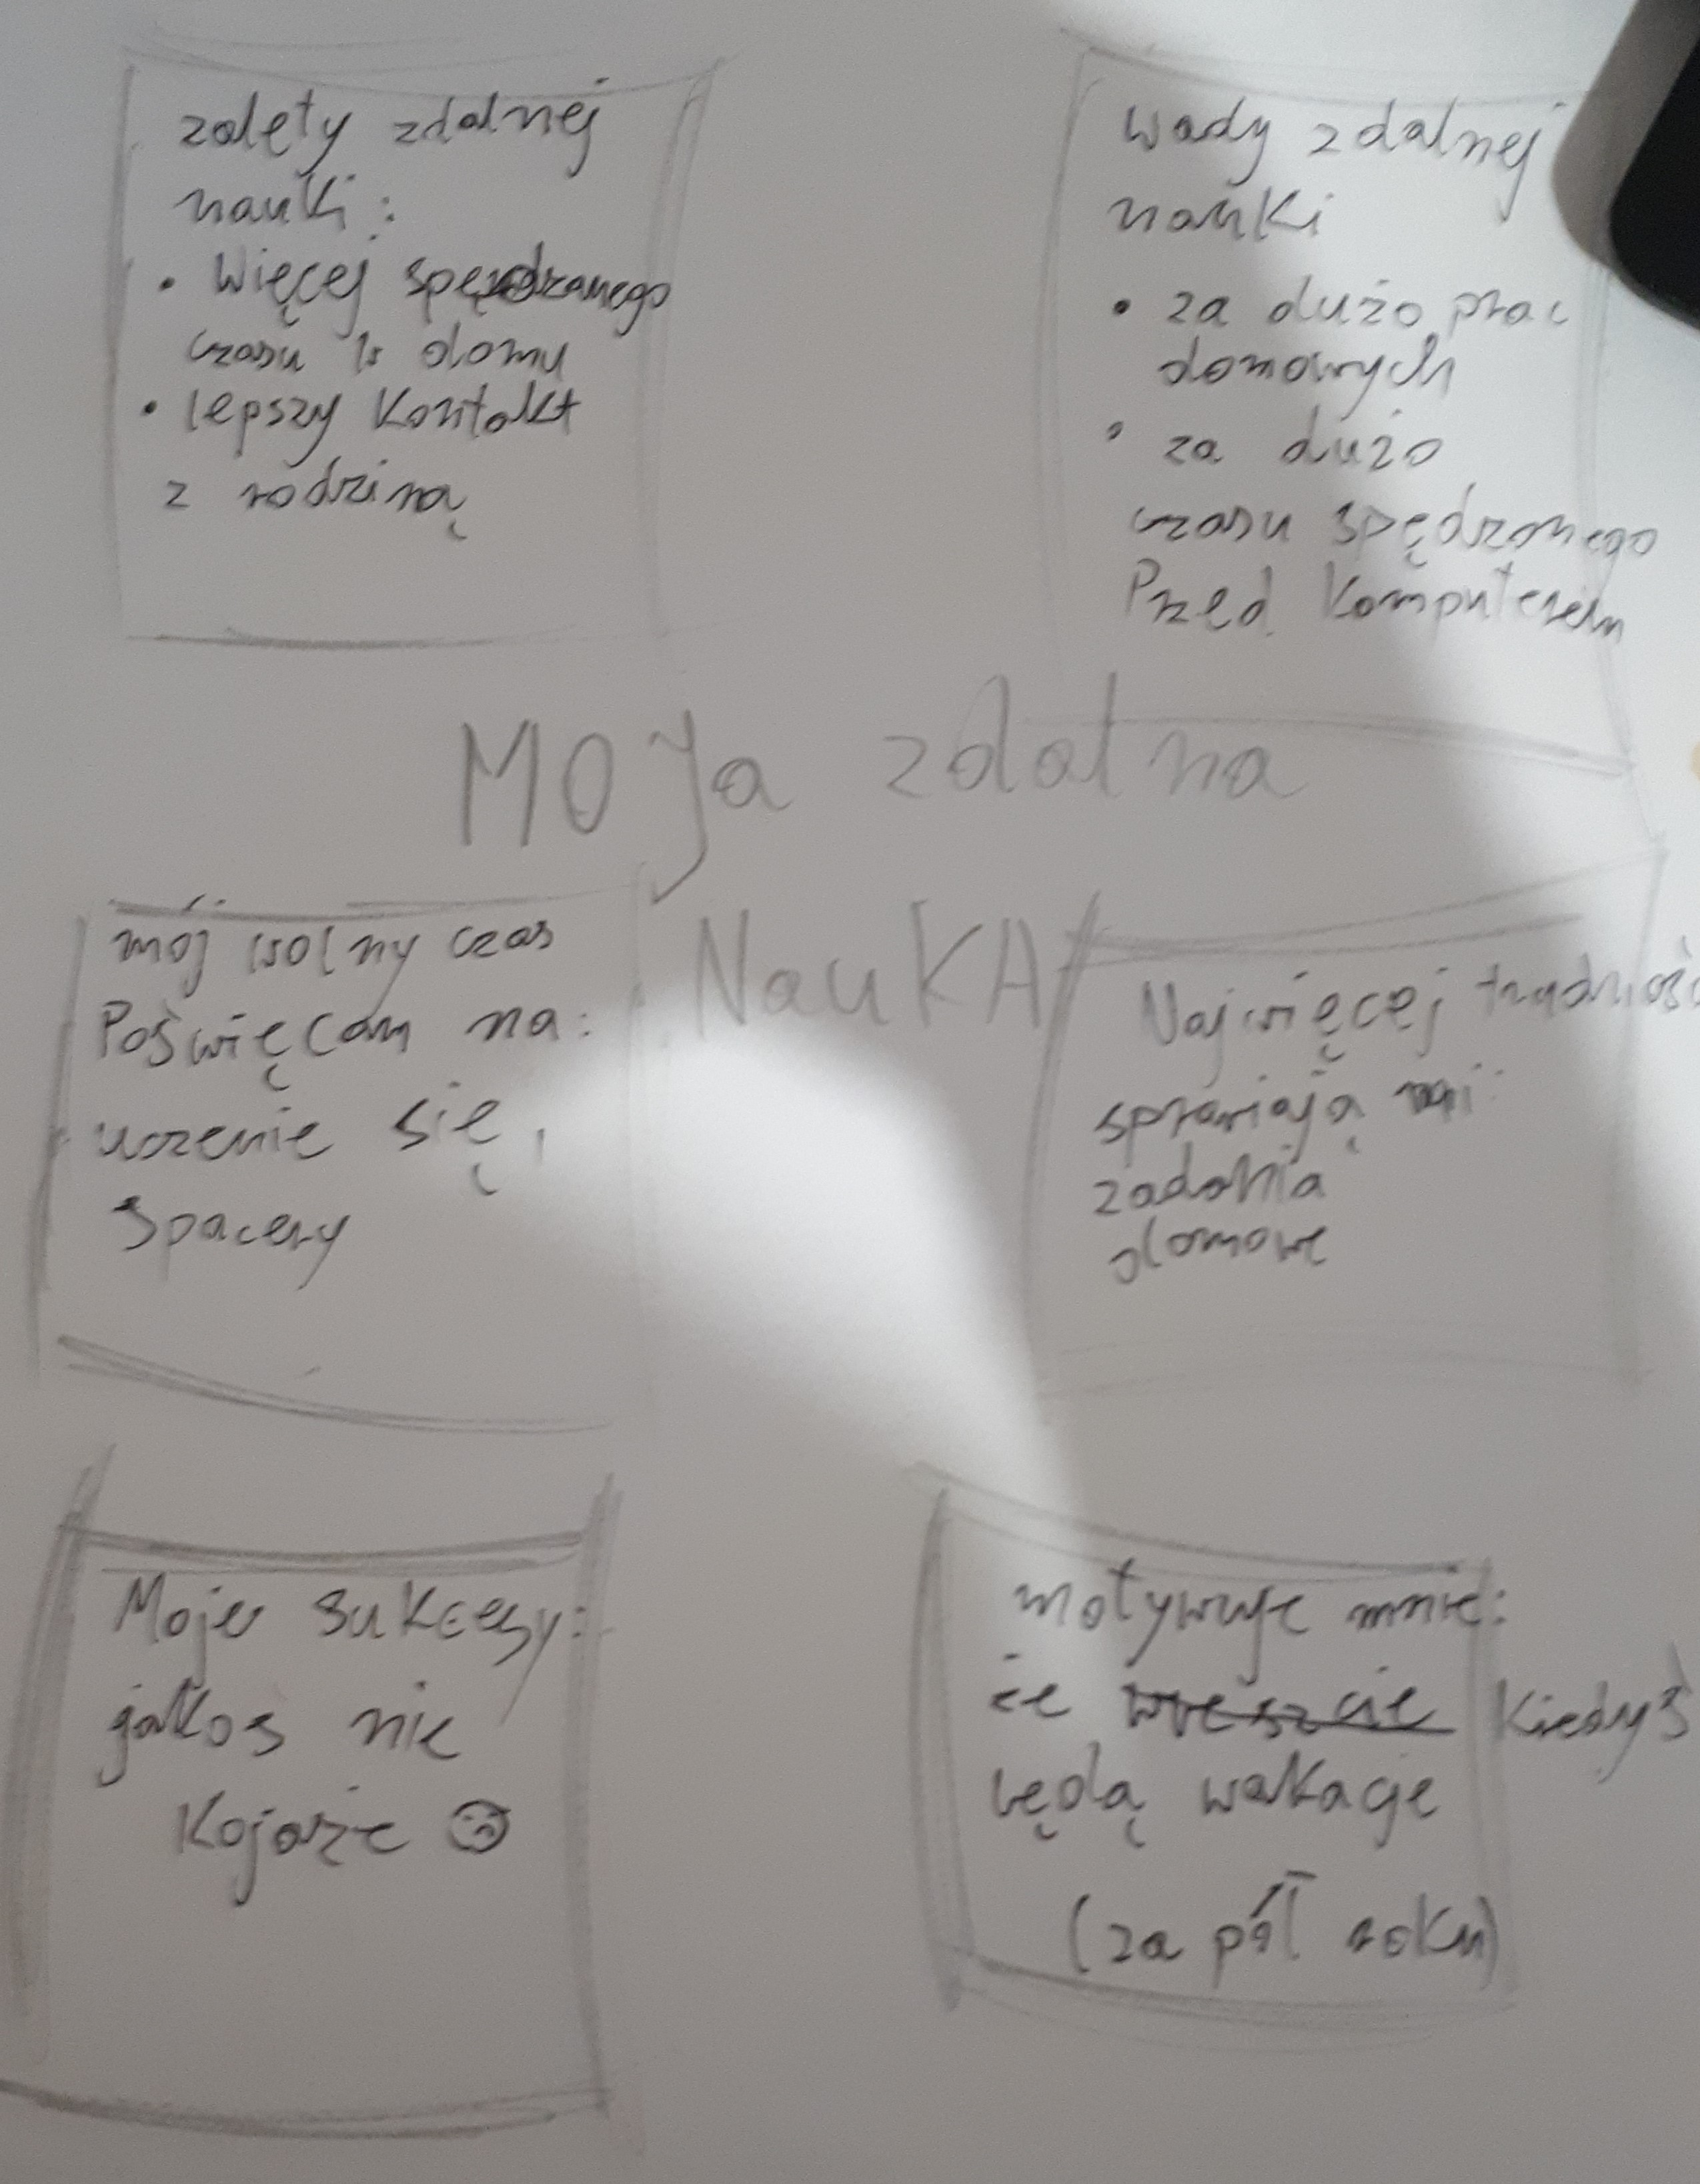 zalety zdalnej
nauki:
• Więcej spędzanego
czasu w domu
• lepszy kontakt
z rodziną
wady zdalnej
nauki
• za dużo prac
domowych
• za dużo
czasu spędzonego
Przed komputerem
MOJa zdalna
NauKA
mój wolny czas
Poświęcam na:
uczenie się,
Spacery
Najwięcej trudnośc
sprawiają mi:
zadania
domowe
Moje sukcesy:
jakoś nie
Kojarzę ☹
motywuje mnie:
że wreszcie Kiedyś
będą wakacje
(za pół roku)